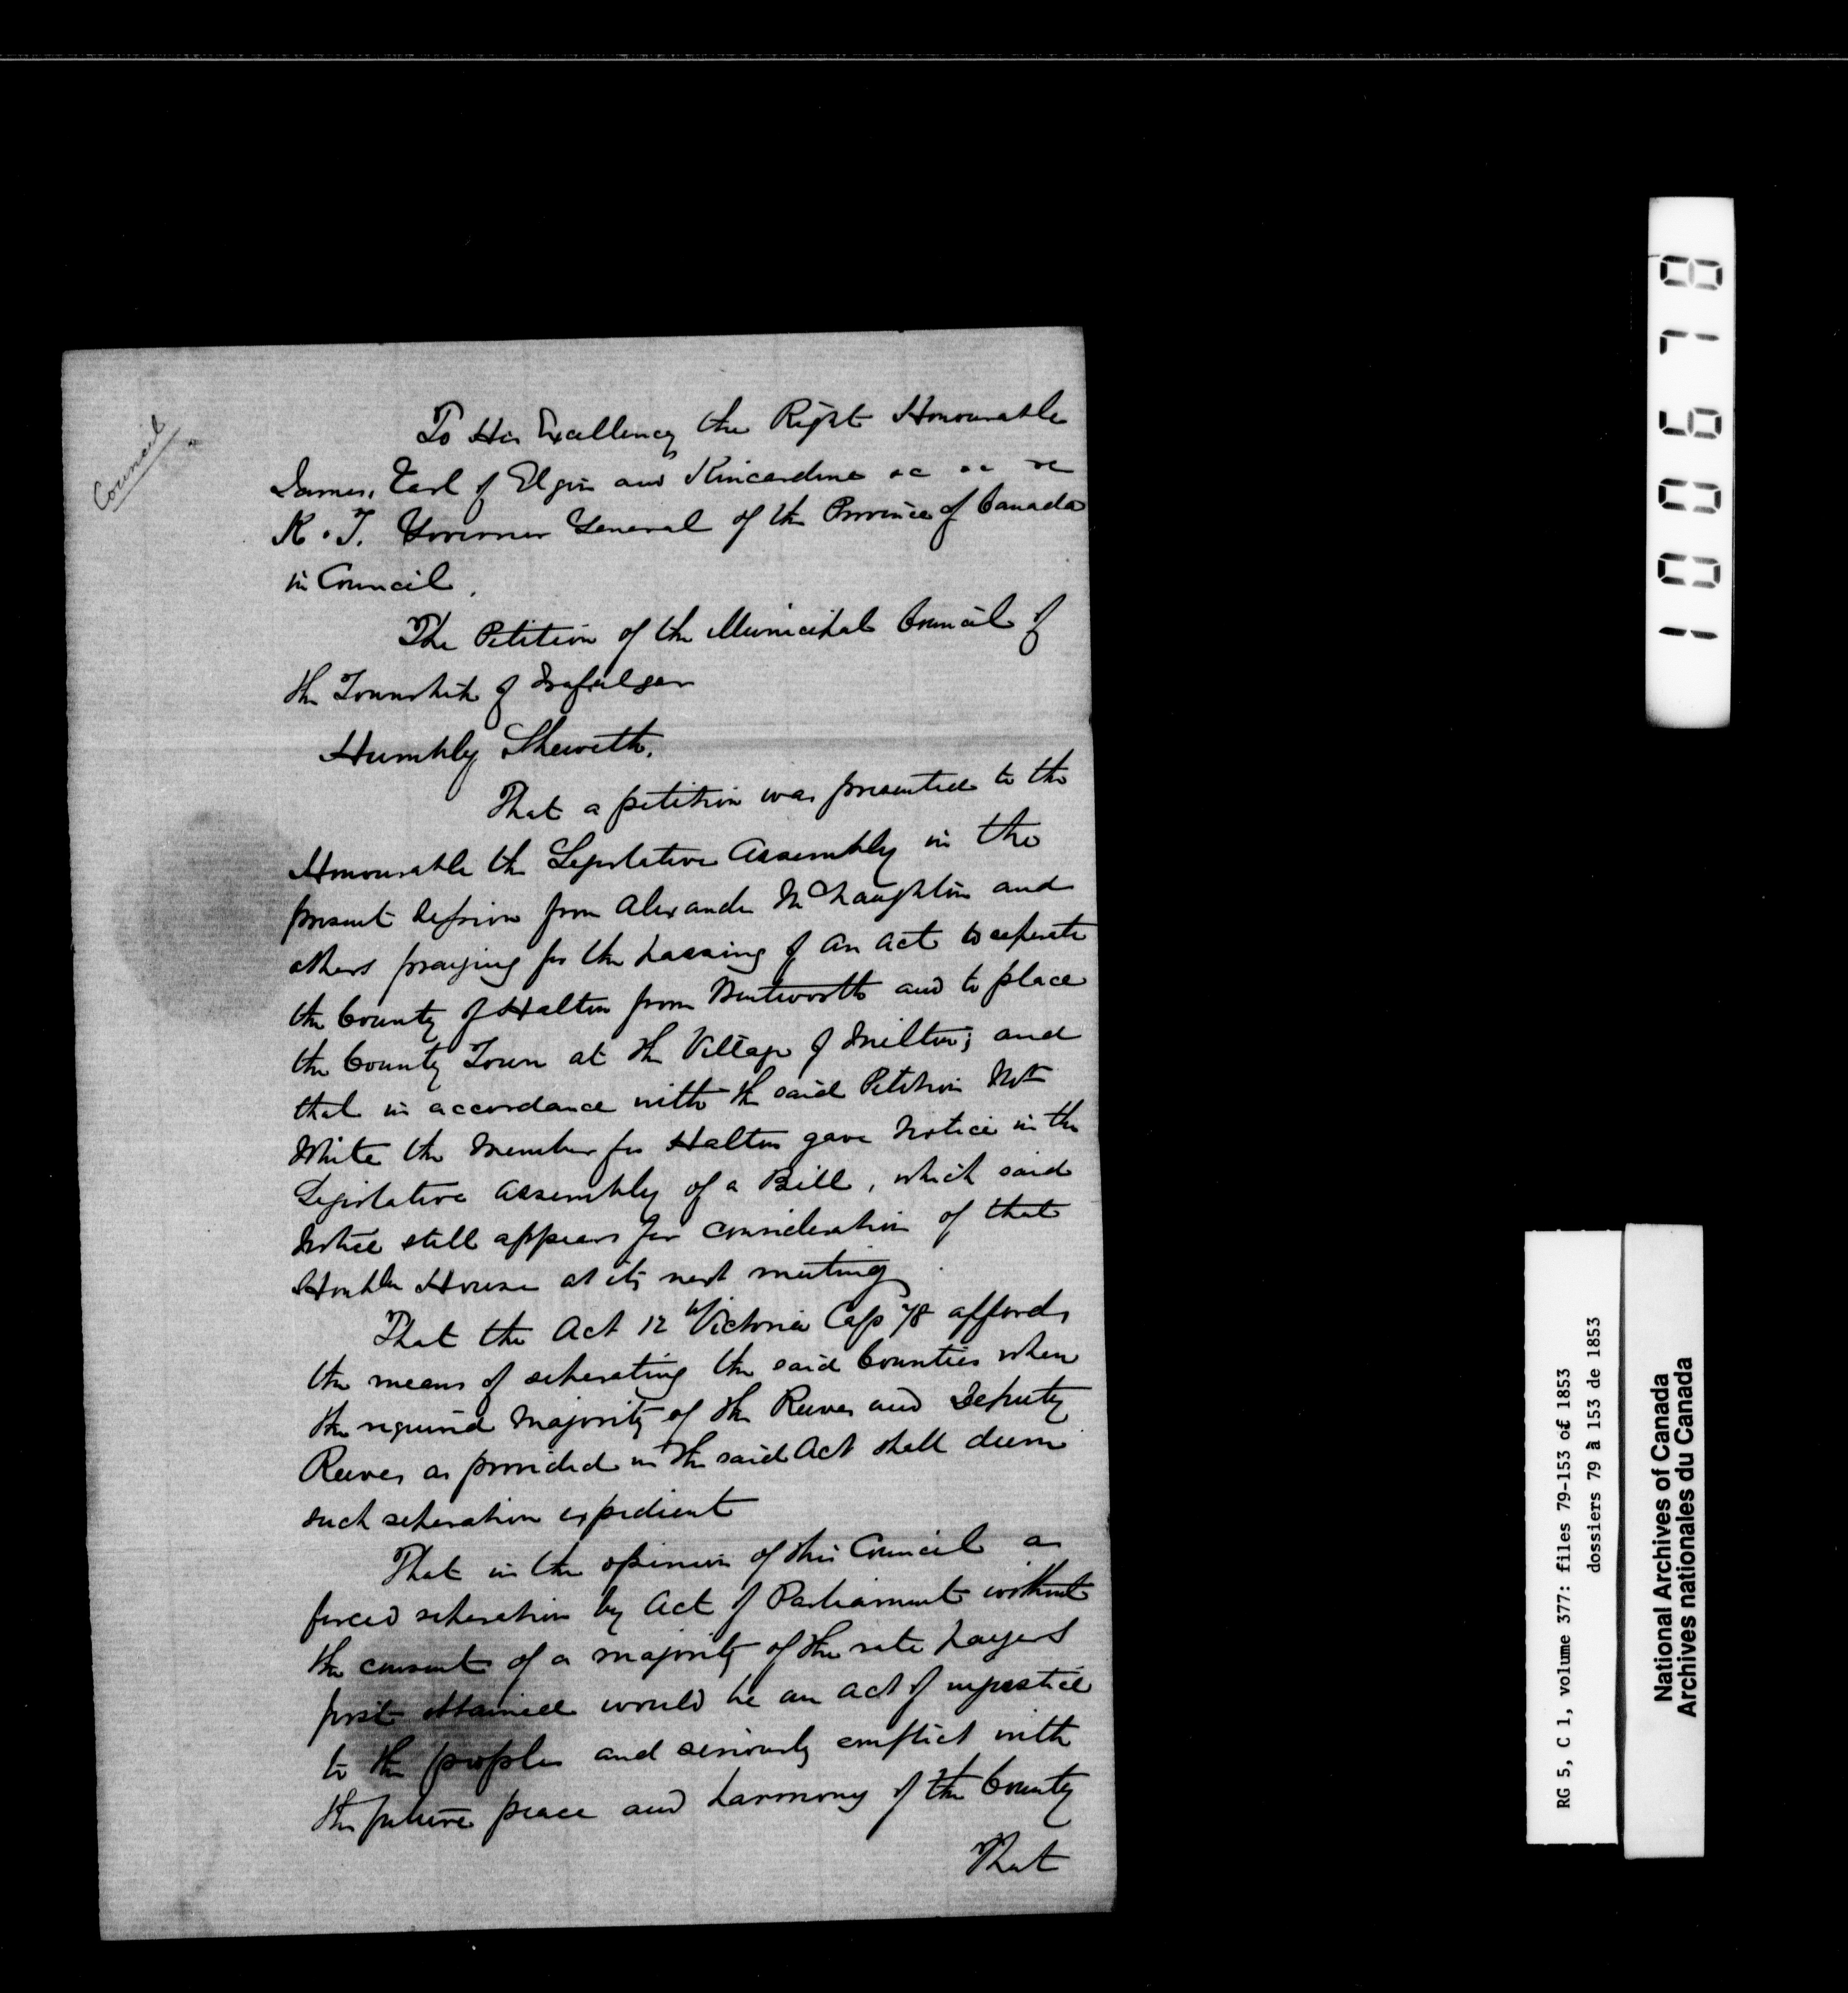 Council
To His Excellency the Right Honourable
James, Earl of Elgin and Kincardine &c &c &c
K. T. Governor General of the Province of Canada
in Council.
The Petition of the Municipal Council of
the Township of Trafalgar
Humbly Sheweth,
That a petition was presented to the
Honourable the Legislative Assembly in the
present Session from Alexander McNaughton and
others praying for the passing of an Act to seperate
the County of Halton from Wentworth and to place
the County Town at the Village of Milton; and
that in accordance with the said Petition Mr
White the Member for Halton gave Notice in the
Legislative Assembly of a Bill, which said
Notice still appears for consideration of that
Honble House at its next meeting.
That the Act 12 Victoria Cap 78 affords
the means of seperating the said Counties when
the required Majority of the Reeves and Deputy
Reeves as provided in the said Act shall deem
such seperation expedient
That in the opinion of this Council a
forced seperation by Act of Parliament without
the consent of a majority of the rate payers
first obtained would be an act of injustice
to the people and seriously conflict with
the future peace and harmony of the County
That
1000678
RG 5, C 1, volume 377: files 79-153 of 1853
dossiers 79 à 153 de 1853
National Archives of Canada
Archives nationales du Canada